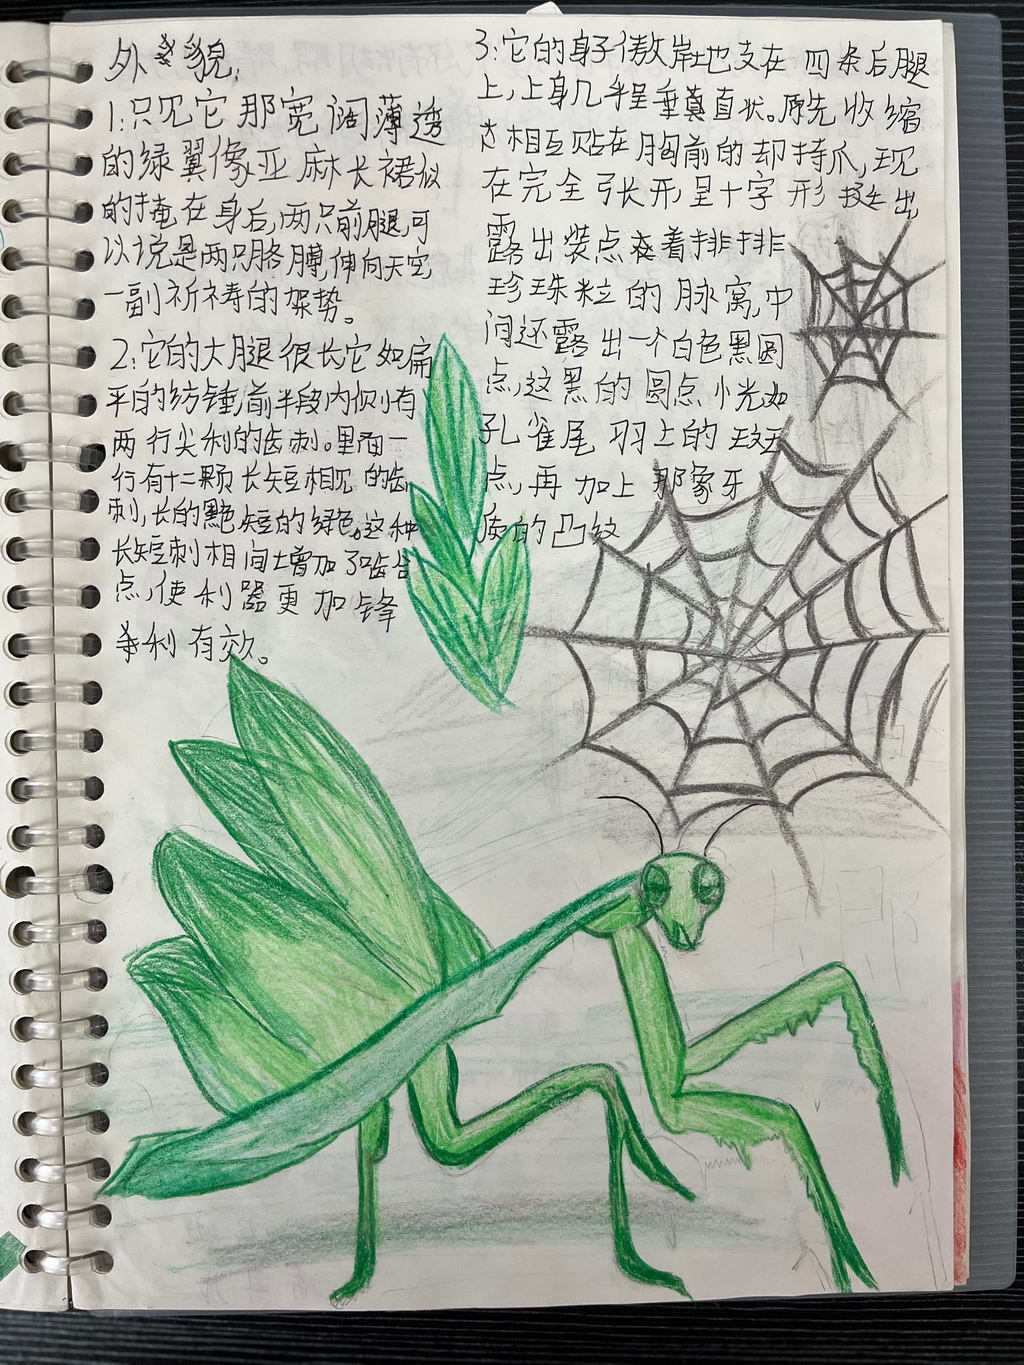 外貌：
1:只见它那宽阔薄透
的绿翼像亚麻长裙似
的掩在身后,两只前腿,可
以说是两只胳膊,伸向天空
一副祈祷的架势。
2:它的大腿很长它如扁
平的纺锤,前半段内侧有
两行尖利的齿刺。里面一
行有十二颗长短相见的齿
刺,长的黑色短的绿色。这种
长短刺相间土增加了啮合
点,使利器更加锋
利有效。
3:它的身子傲岸地支在四条后腿
上,上身几乎呈垂直状。原先收缩
相互贴在胸前的却持爪,现
在完全张形呈十字形挺出
露出装点着排排
珍珠粒的脉窝,中
间还露出一个白色黑圆
点,这黑的圆点恍如
孔雀尾羽上的斑
点,再加上那象牙
质的凸纹